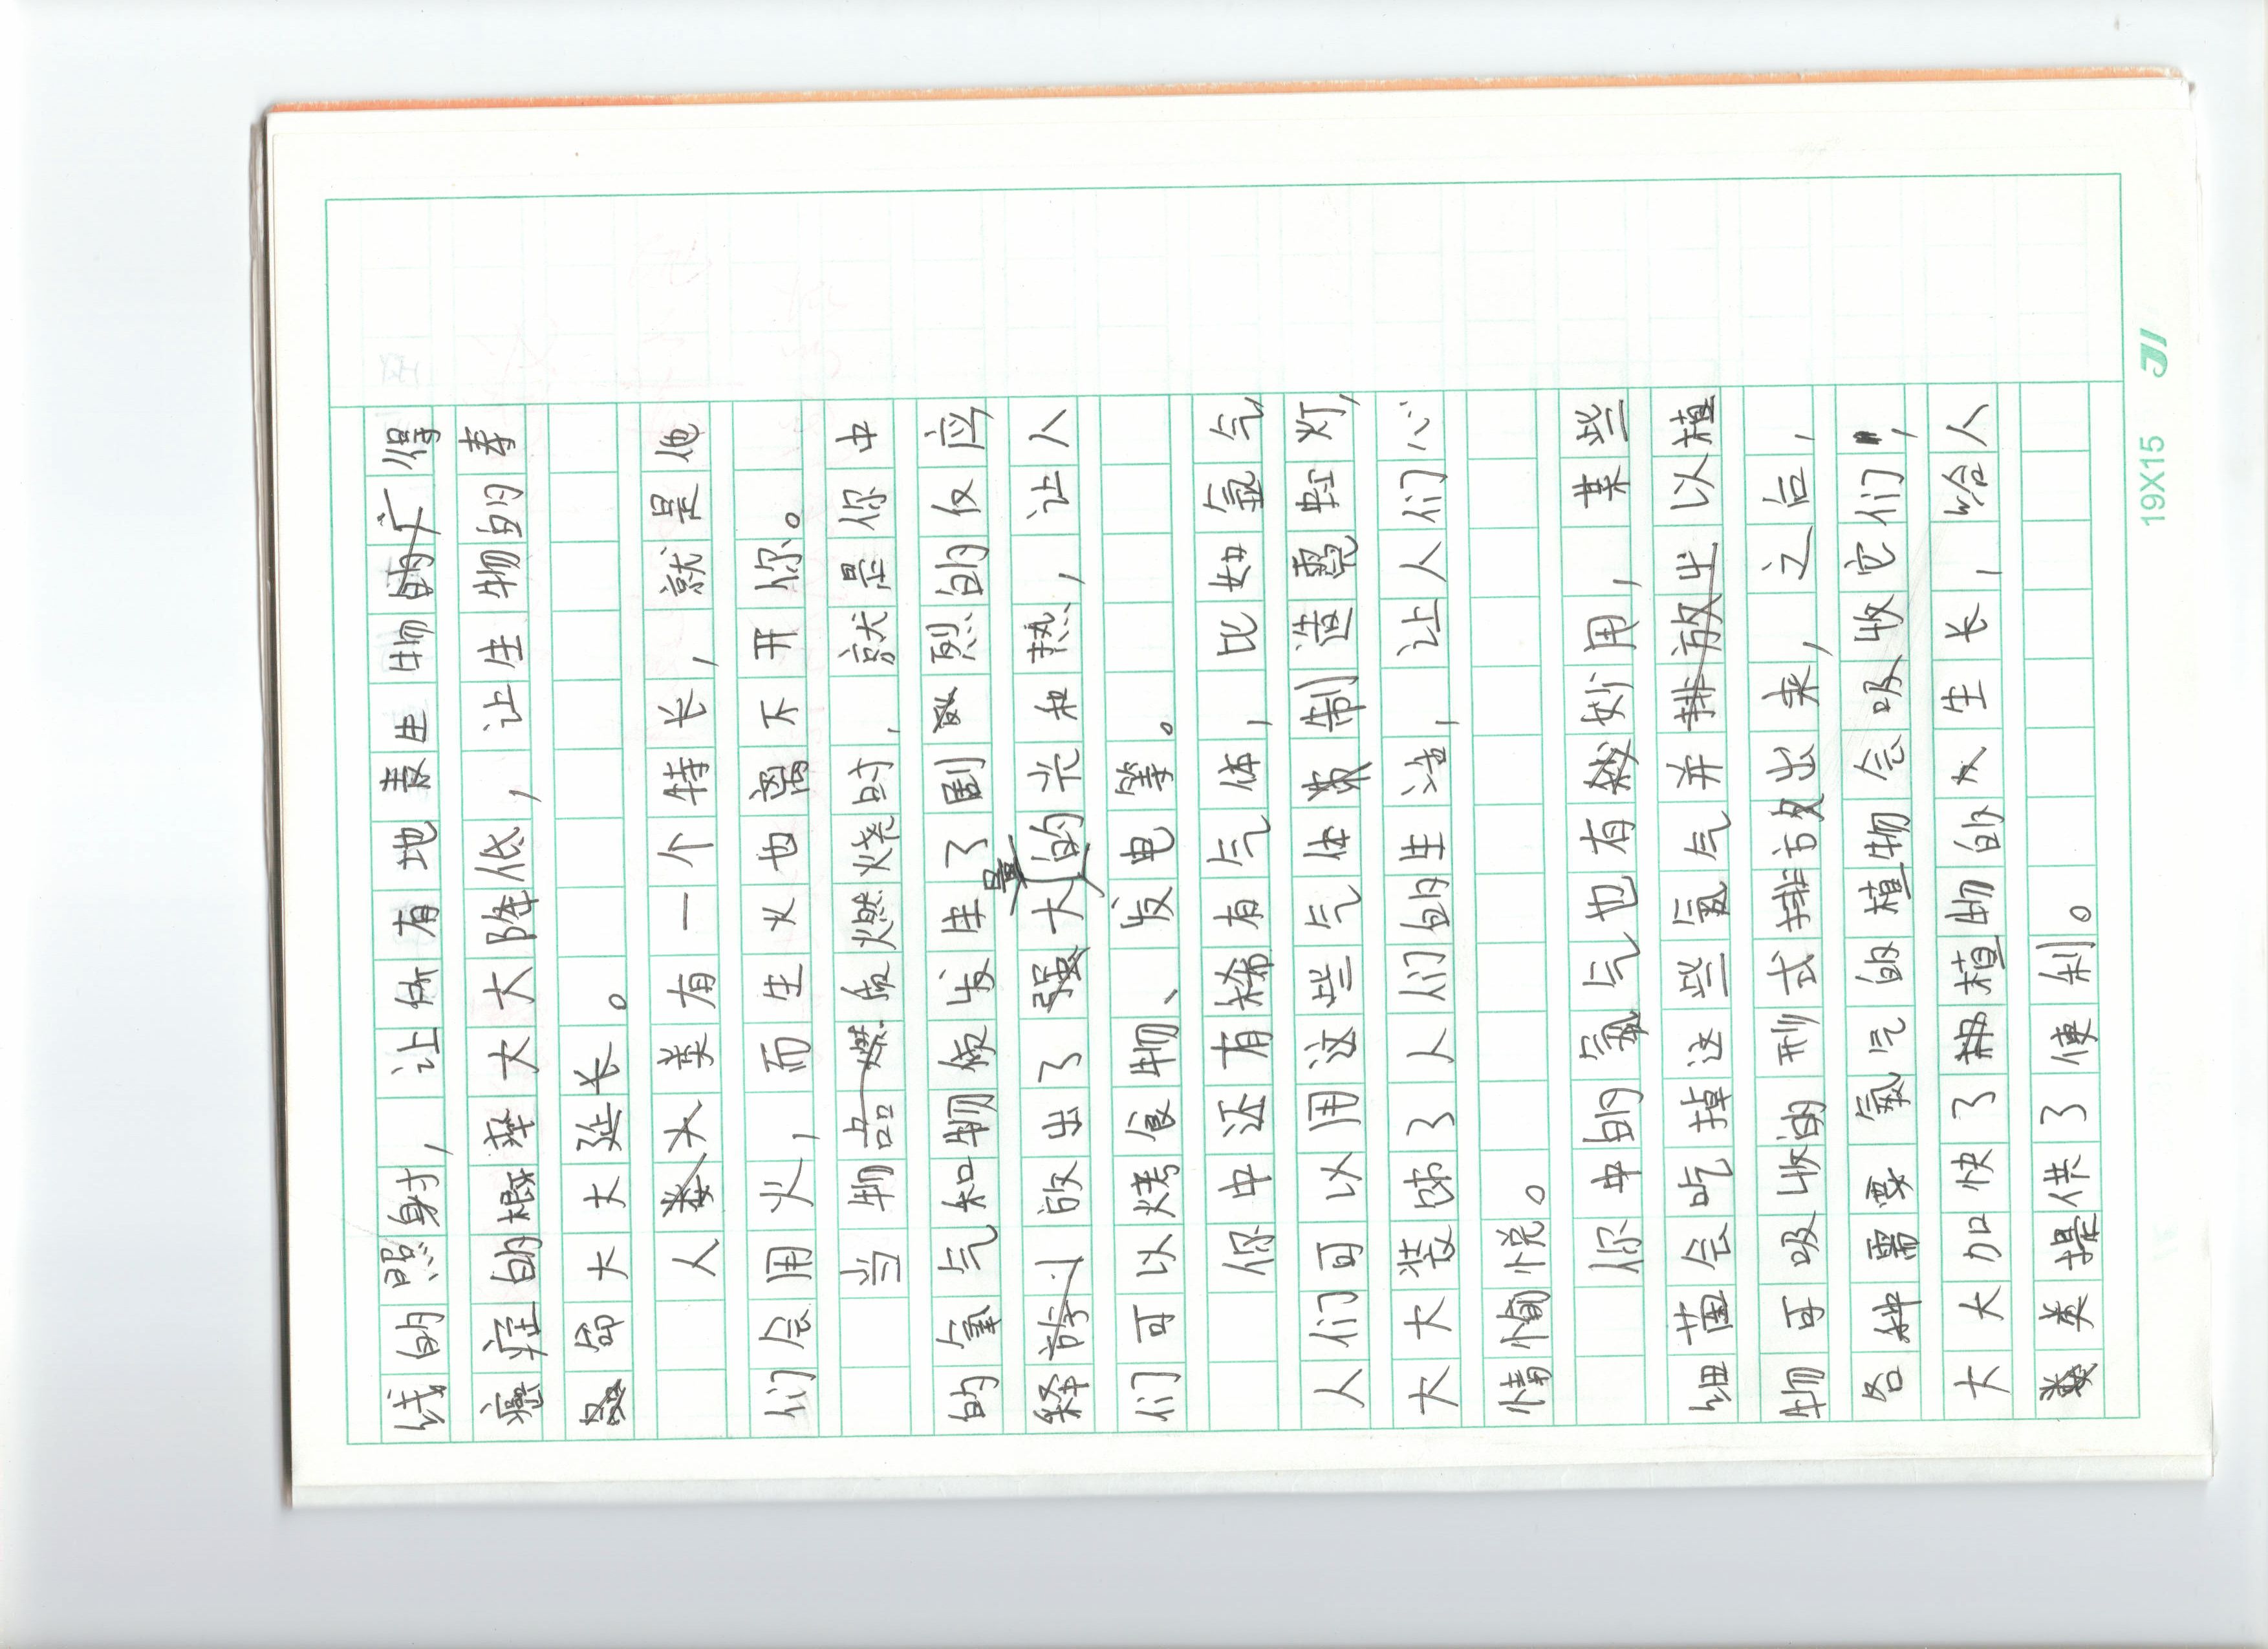 线的照射，让体有地表生物的得
癌症的概率大大降低，让生物的寿
命大大延长。
人类有一个特长，就是他
们会用火，而生火也离不开你。
当物品燃烧时，就是你中
的氧气和物质发生了剧烈的反应，
释放出了强大的光和热，让人
们可以烤食物、发电等。
你中还有稀有气体，比如氩气，
人们可以用这些气体来制造霓虹灯，
大大装饰了人们的生活，让人们心
情愉悦。
你中的氮气也有妙用，某些
细菌会吃掉这些氮气并以植
物可吸收的形式排放出来，之后，
各种需要氮气的植物会吸收它们，
大大加快了植物的生长，给人
类提供了便利。
19X15